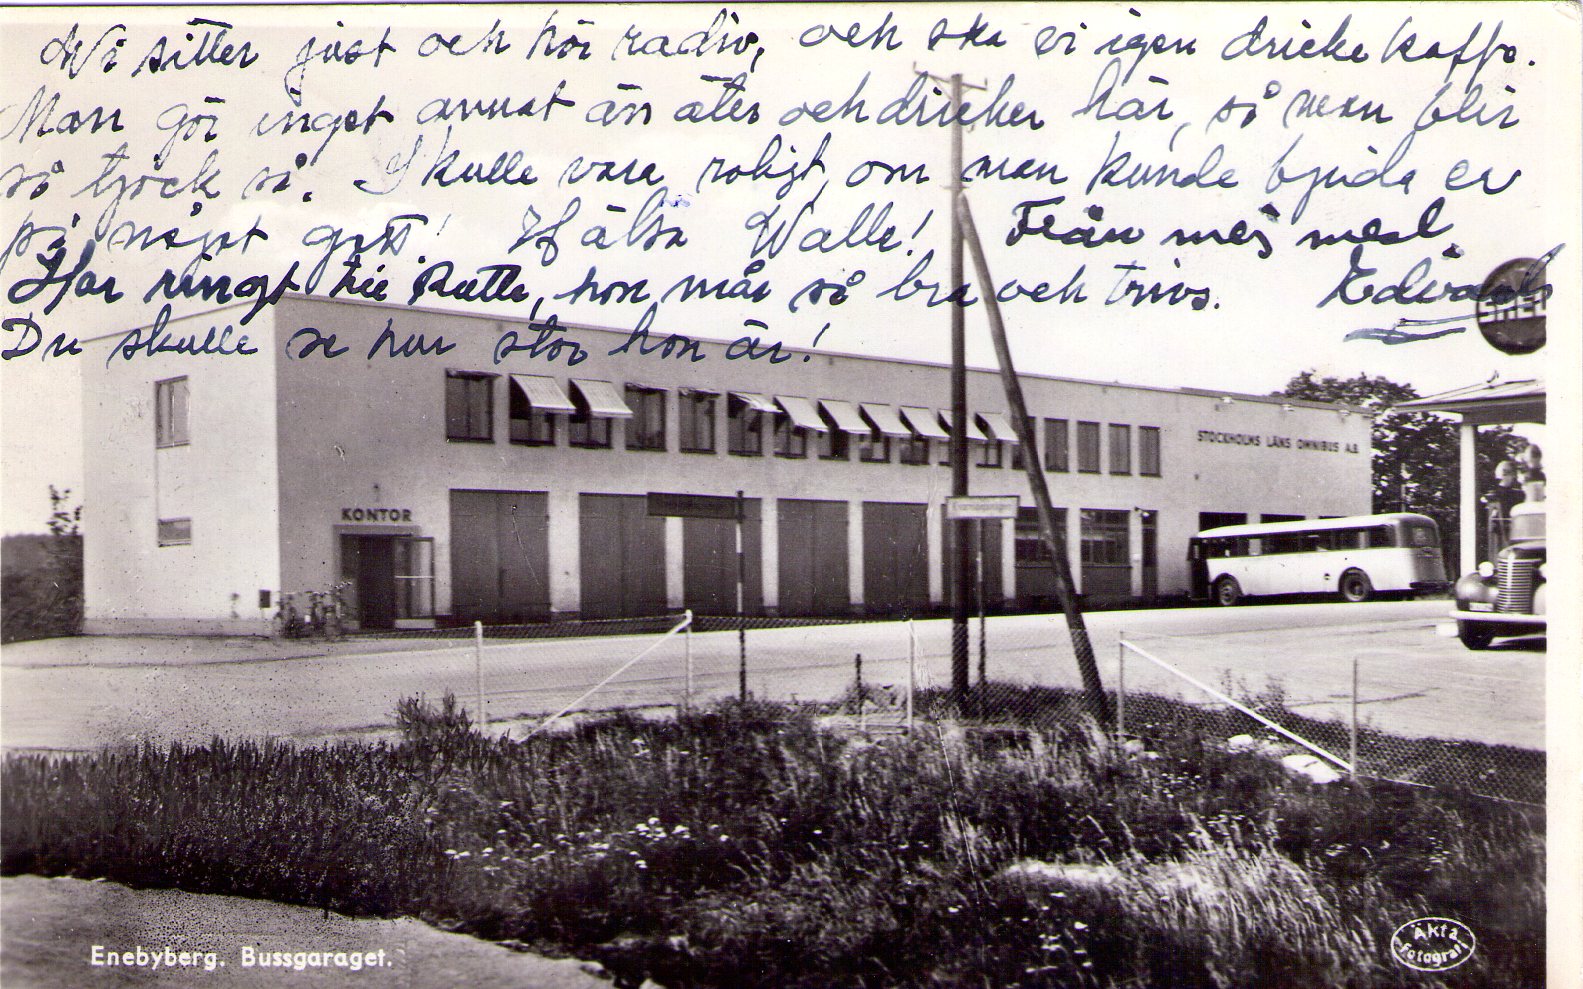 Vi sitter just och hör radio, och ska vi igen dricka kaffe.
Man gör inget annat än äter och dricker här, så man blir
så tjock så. Skulle vara roligt, om man kunde bjuda er
på något gott! Hälsa Walle! Från mig med
Har ringt till Rutle, hon mår så bra och trivs. Edvard
Du skulle se hur stor hon är!
SHELL
STOCKHOLMS LÄNS OMNIBUS A.B.
KONTOR
Enebyberg. Bussgaraget.
Äkta
fotografi